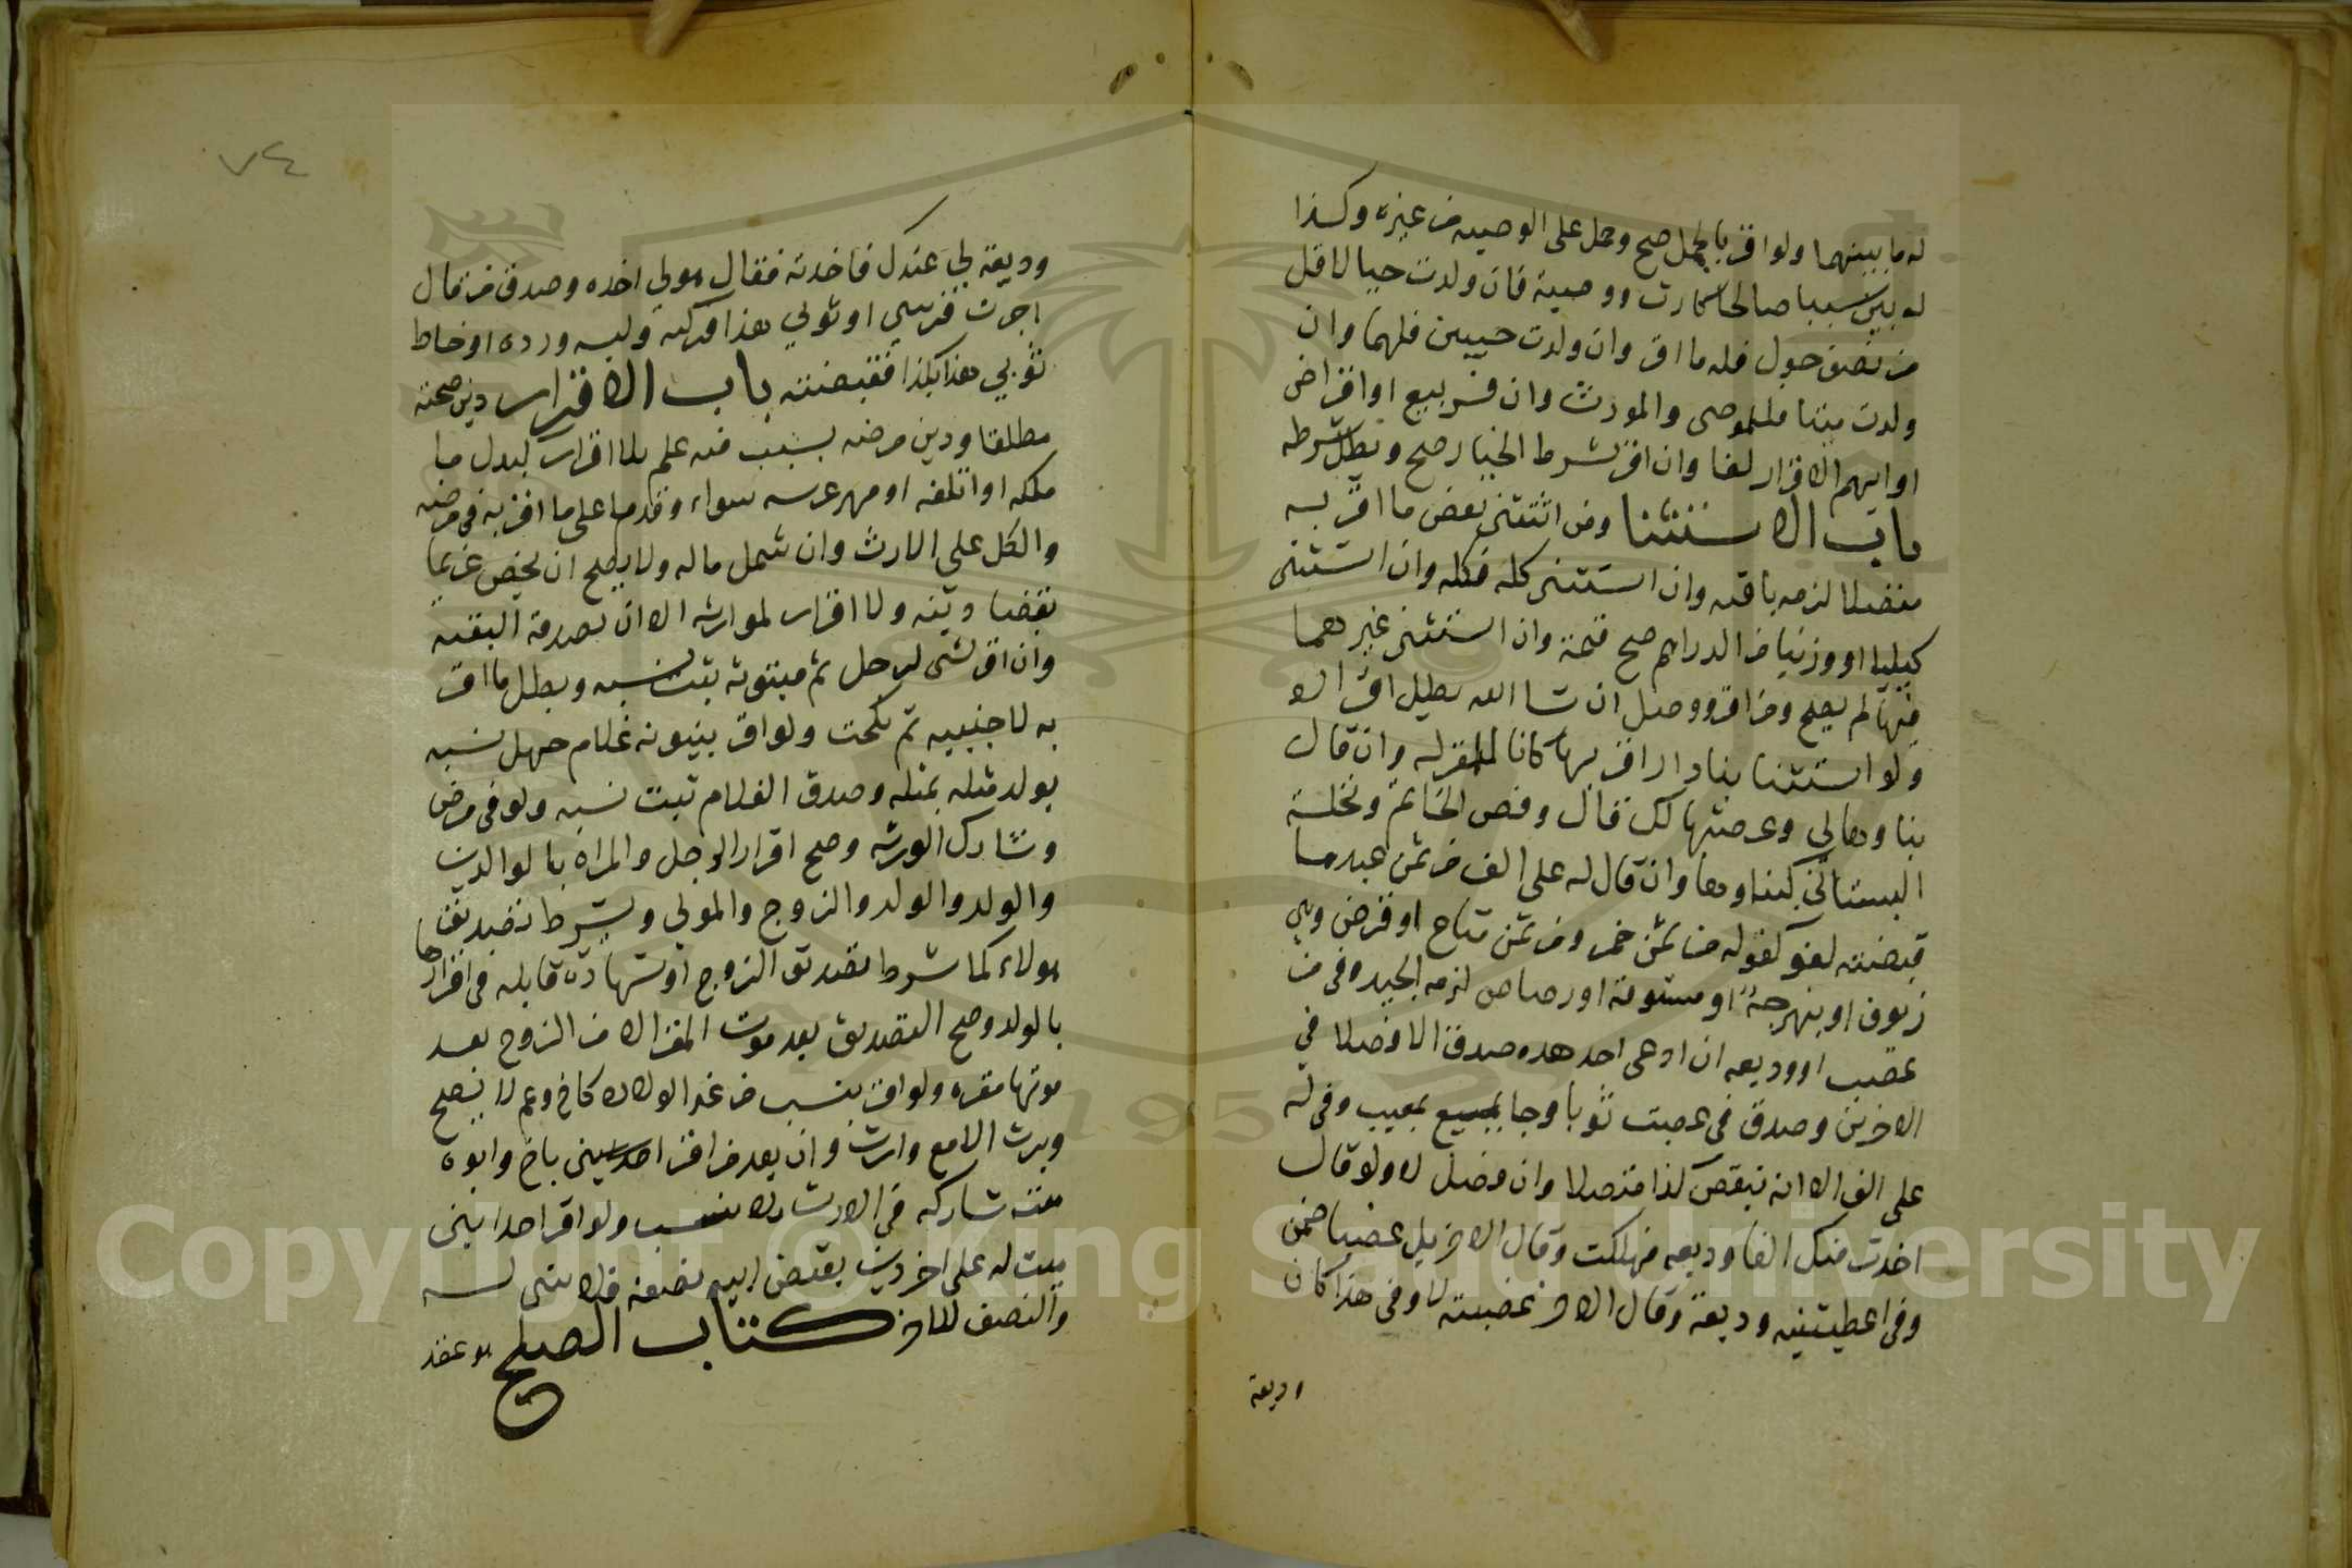 له ما بينهما ولو اقر بالحمل صح وحمل على الوصيه من غيره وكذا
له بين سببا صالحا كارث ووصية فان ولدت حيا لاقل
من نصف حول فله ما اقر وان ولدت حيين فلهما وان
ولدت ميتا فللموصى والمورث وان فسر ببيع او اقراض
او ابهم الاقرار لغا وان اقر بشرط الخيار صح وبطل شرطه
باب الاستثنا ومن استثنى بعض ما اقر به
متصلا لزمه باقيه وان استثنى كله فكله وان استثنى
كيليا او وزنيا من الدراهم صح قيمة وان استثنى غيرهما
منها لم يصح ومن اقر ووصل ان شا الله بطل اقراره
ولو استثنا بنا دار اقر بها كانا للمقر له وان قال
بناوها لي وعرصتها لك فكما قال وفص الخاتم ونخلة
البستان كبناوها وان قال له على الف من ثمن عبد ما
قبضته لغو كقوله من ثمن خمر ومن ثمن متاع او قرض وهي
زيوف او نبهرجة او ستوقة او رصاص لزمه الجيد وفي من
غصب او وديعه ان ادعى احد هذه صدق الا فصلا في
الاخرين وصدق في غصبت ثوبا وجا بمعيب وفي له
على الف الا انه ينقص كذا متصلا وان فصل لا ولو قال
اخذت منك الفا وديعه فهلكت وقال الاخر بل غصبا ضمن
وفي اعطيتنيه وديعة وقال الاخر غصبته لا وفي هذا كان
وديعة
٧٤
وديعة لي عندك فاخذته فقال هو لي اخذه وصدق من قال
اجرت فرسي او ثوبي هذا فركبه ولبسه ورده او خاط
ثوبي هذا بكذا فقبضته باب الاقرار دين صحته
مطلقا ودين مرضه بسبب فيه علم بلا اقرار كبدل ما
ملكه او اتلفه او مهر عرسه سواء وقدما على ما اقر به في مرضه
والكل على الارث وان شمل ماله ولا يصح ان يخص غريما
بقضا دينه ولا اقرار لوارثه الا ان يصدقه البقيه
وان اقر بشى لرجل ثم ببنوته ثبت نسبه وبطل ما اقر
به لا جنبيه ثم نكحت ولو اقر ببنوة غلام جهل نسبه
يولد مثله بمثله وصدق الغلام ثبت نسبه ولو في مرض
وشارك الورثه وصح اقرار الرجل والمراه بالوالدين
والولد والولد والزوج والمولى وشرط تصديق
هولاء كما شرط تصديق الزوج او شهادة قابله في اقرارها
بالولد وصح التصديق بعد موت المقر الا من الزوج بعد
موتها مقره ولو اقر بنسب من غير الولاد كاخ وعم لا يصح
ويرث الا مع وارث وان بعد من اقر احد ابنين باخ وابوه
ميت شاركه في الارث بلا نسب ولو اقر احد ابنى
ميت له على اخر دين بقبض ابيه نصفه فلا شى له
والنصف للاخر كتاب الصلح هو عقد
Copyright © King Saud University
195